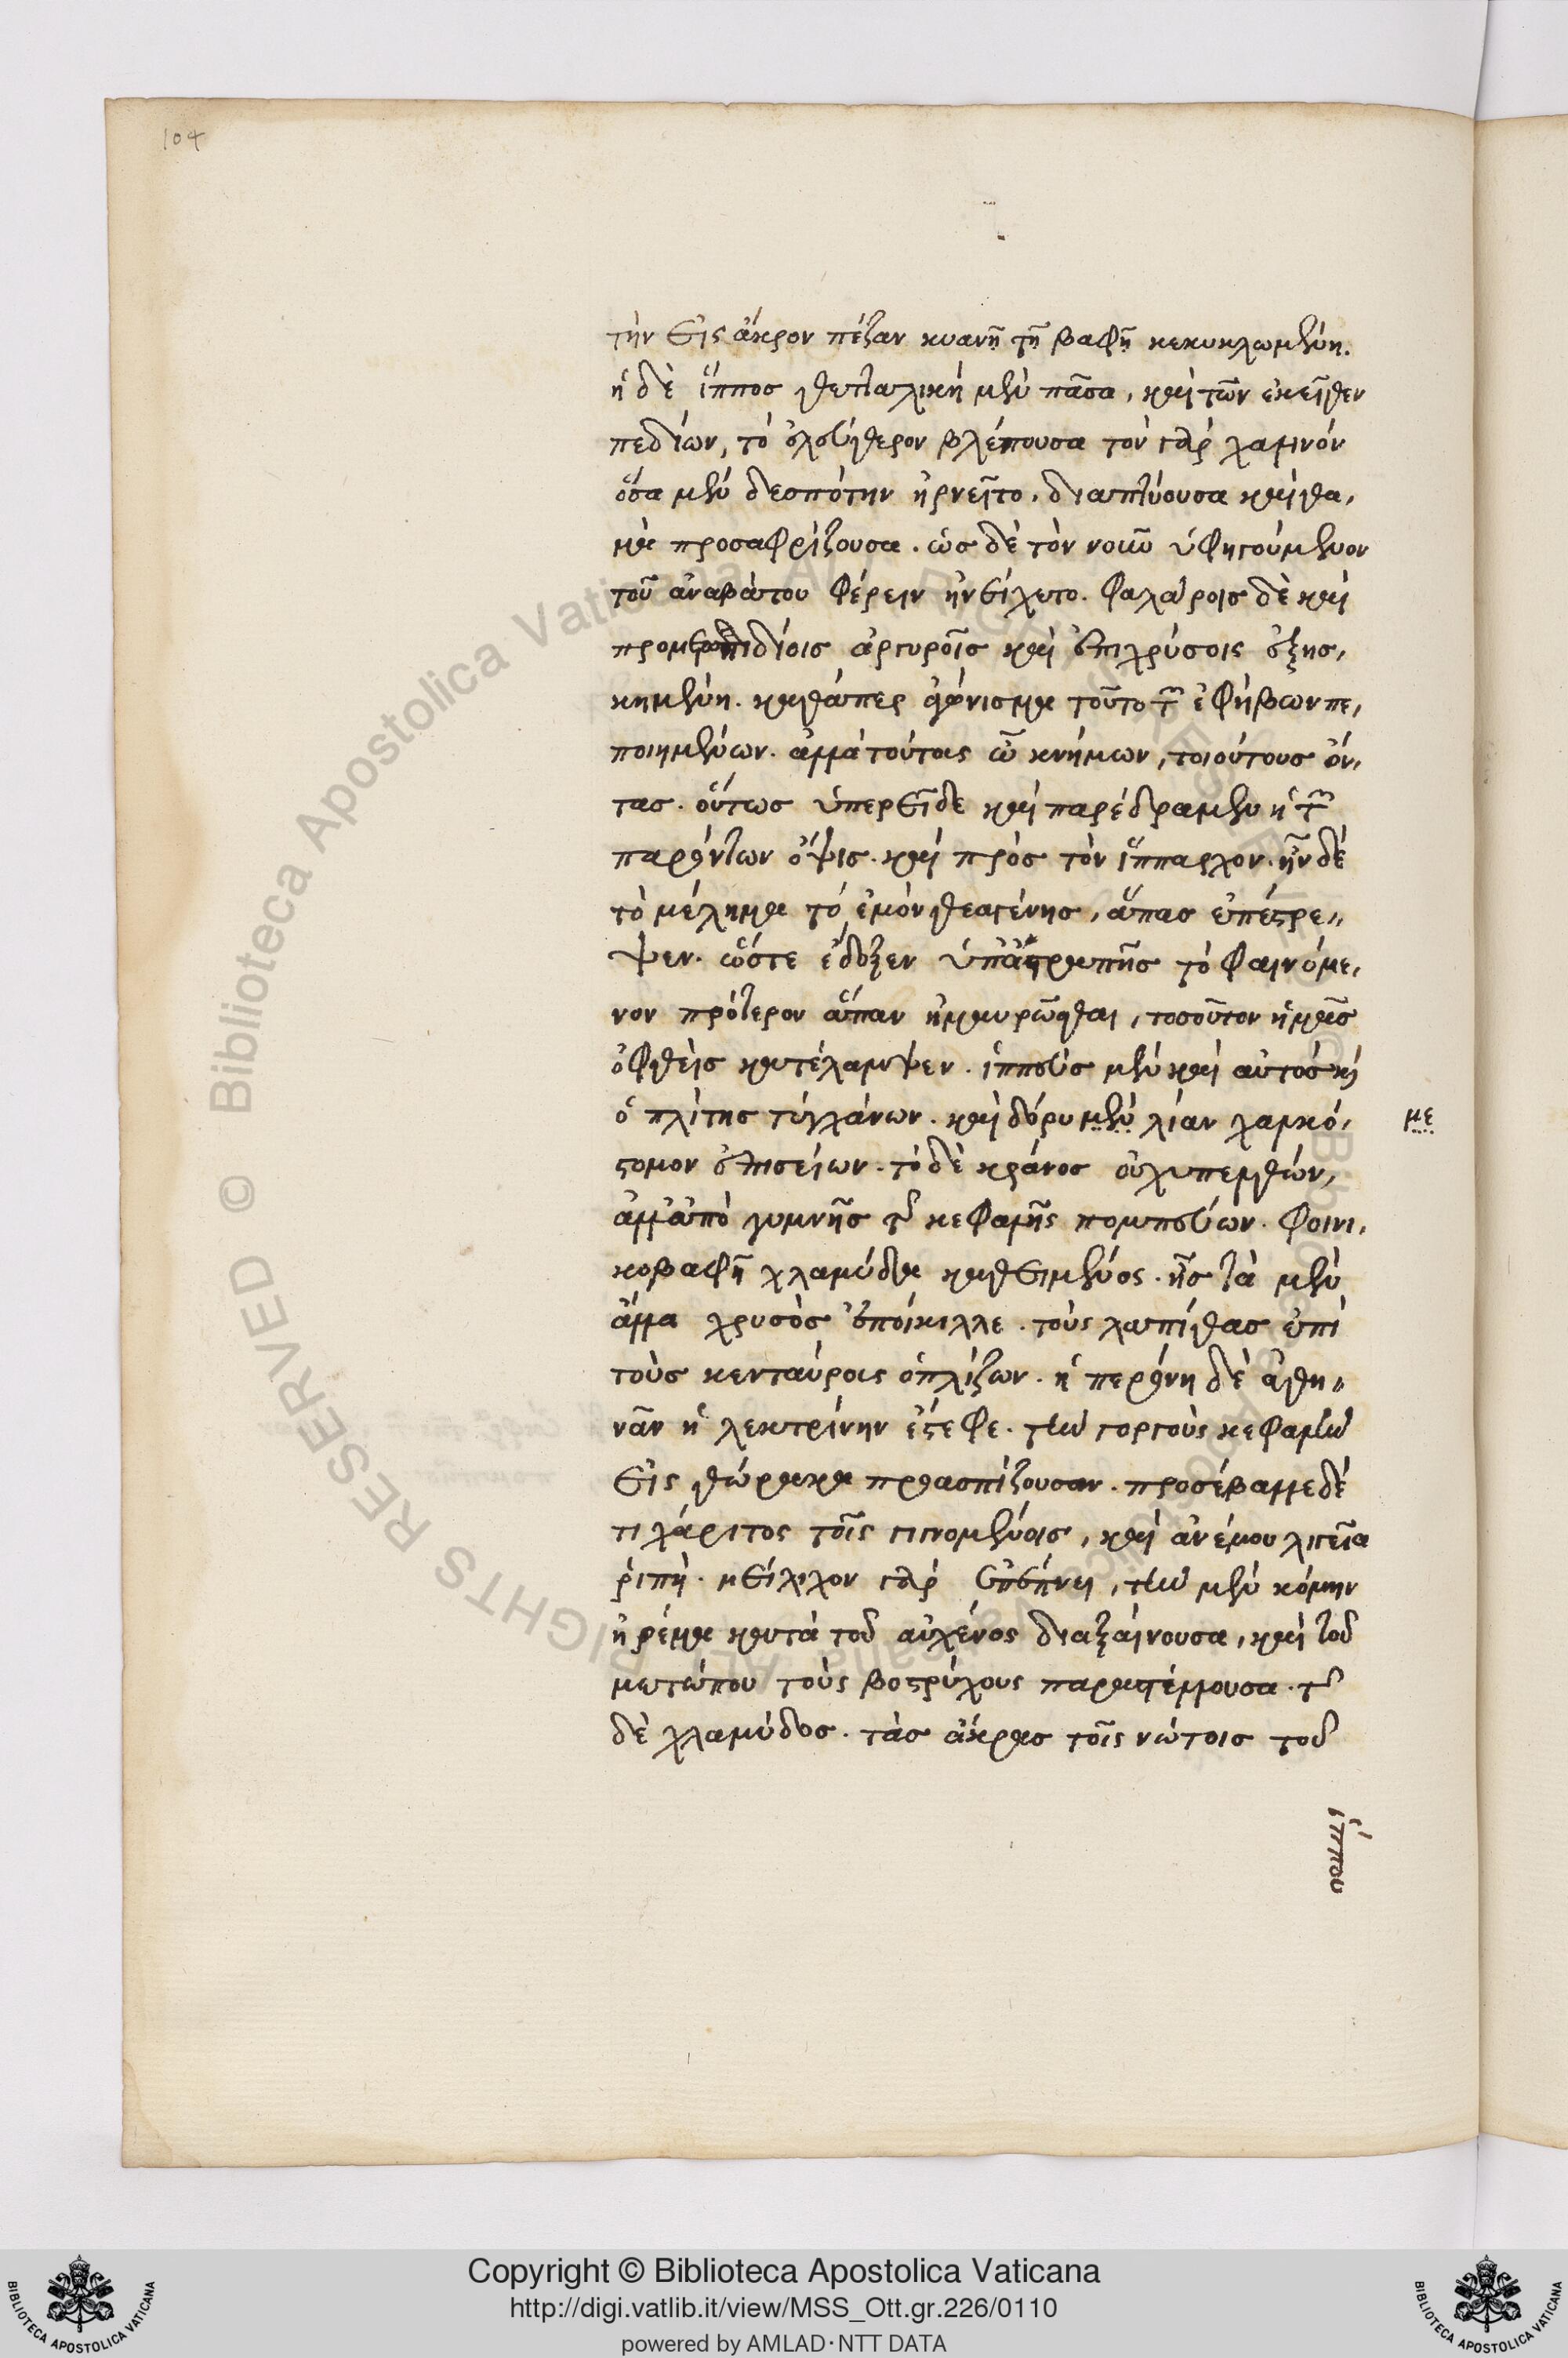 104
τὴν εἰς ἄκρον πέζαν κυανῆ τῆ βαφῆ κεκυκλωμένη.
ἡ δὲ ἵππος θετταλικὴ μὲν πᾶσα, καὶ τῶν ἐκεῖθεν
πεδίων, τὸ ἐλεύθερον βλέπουσα τὸν γὰρ χαλινὸν
ὅσα μὲν δεσπότην ἠρνεῖτο. διαπτύουσα καὶ θα,
μὰ προσαφρίζουσα. ὡς δὲ τὸν νοῦν ὑφηγούμενον
τοῦ ἀναβάτου φέρειν ἠνείχετο. φαλάροις δὲ καὶ
προμετωπιδίοις ἀργυροῖς καὶ ἐπιχρύσοις ἐξησ,
κημένη. καθάπερ ἀγώνισμα τοῦτο τῶν ἐφήβων πε,
ποιημένων. ἀλλὰ τούτους ὦ κνήμων, τοιούτους ὄν,
τας. οὕτως ὑπερεῖδε καὶ παρέδραμεν ἡ τῶν
παρόντων ὄψις. καὶ πρὸς τὸν ἵππαρχον. ἦν δὲ
τὸ μέλημα τὸ ἐμὸν θεαγένης, ἅπας ἐπέστρε,,
ψεν. ὥστε ἔδοξεν ὑπ' ἀστραπῆς τὸ φαινόμε,
νον πρότερον ἅπαν ἠμαυρῶσθαι, τοσοῦτον ἡμᾶς
ὀφθεὶς κατέλαμψεν. ἱππεὺς μὲν καὶ αὐτὸς καὶ
ὁπλίτης τυγχάνων. καὶ δόρυ μὲν λίαν χαλκό,
στομον ἐπισείων. τὸ δὲ κράνος οὐχ ὑπελθών,
ἀλλ' ἀπὸ γυμνῆς τῆς κεφαλῆς πομπεύων. φοινι,
κοβαφῆ χλαμύδα καθειμένος. ἧς τὰ μὲν
ἄλλα χρυσὸς ἐποίκιλλε. τοὺς λαπίθας ἐπὶ
τοὺς κενταύρους ὁπλίζων. ἡ περόνη δὲ ἀθη,,
νᾶν ἠλεκτρίνην ἔστεφε. τὴν γοργοὺς κεφαλὴν
εἰς θώρακα προασπίζουσαν. προσέβαλλε δέ
τι χάριτος τοῖς γινομένοις, καὶ ἀνέμου λιγεῖα
ῥιπή. μείλιχον γὰρ ἐπέπνει, τὴν μὲν κόμην
ἠρέμα κατὰ τοῦ αὐχένος διαξαίνουσα, καὶ τοῦ
μετώπου τοὺς βοστρύχους παραστέλλουσα. τῆς
δὲ χλαμύδος. τὰς ἄκρας τοῖς νώτοις τοῦ
με
ἵππου
Copyright © Biblioteca Apostolica Vaticana
http://digi.vatlib.it/view/MSS_Ott.gr.226/0110
powered by AMLAD·NTT DATA
BIBLIOTECA APOSTOLICA VATICANA
BIBLIOTECA APOSTOLICA VATICANA
© Biblioteca Apostolica Vaticana ALL RIGHTS RESERVED